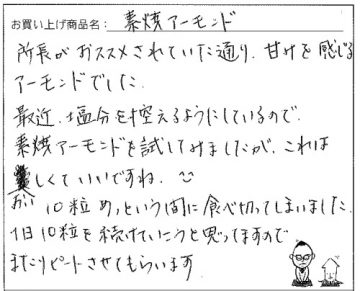 お買い上げ商品名： 素焼アーモンド
所長がおススメされていた通り、甘みを感じる
アーモンドでした。
最近、塩分を控えるようにしているので、
素焼アーモンドを試してみましたが、これは
しくていいですね。
10粒 めっという間に食べ切ってしまいました。
1日10粒を続けていこうと思ってますので
またリピートさせてもらいます。